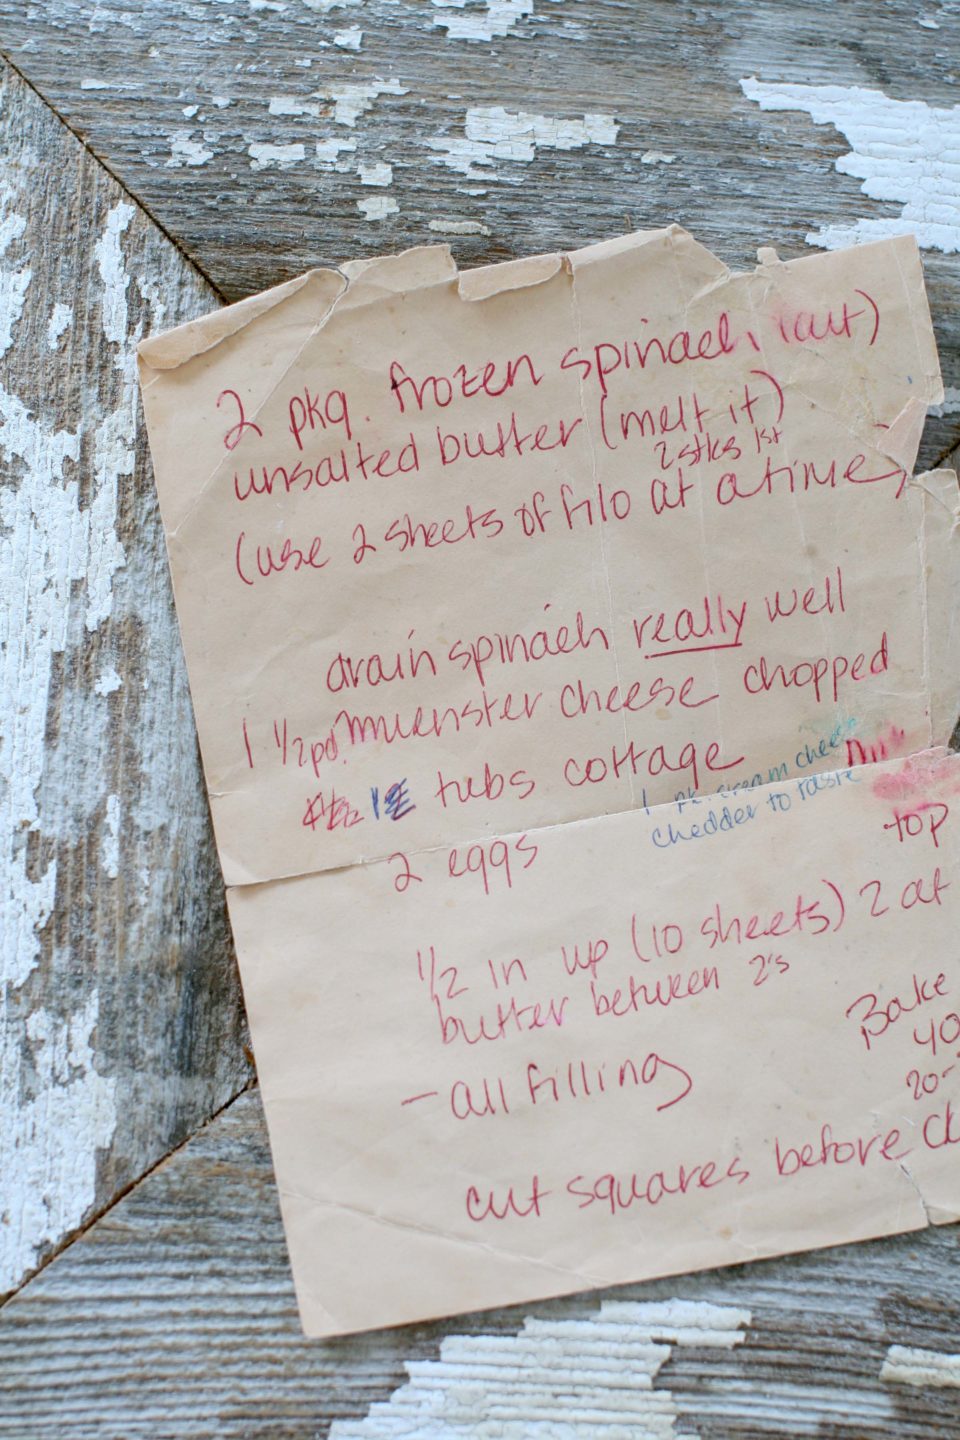 2 pkg. frozen spinach (cut)
unsalted butter (melt it)
2 stks 1st
(use 2 sheets of filo at a time)
drain spinach really well
1 1/2 pd. muenster cheese chopped
tubs cottage
1 pk. cream cheese
chedder to taste
2 eggs
top
1/2 in up (10 sheets) 2 at
butter between 2's
Bake
40
- all filling
20-
cut squares before